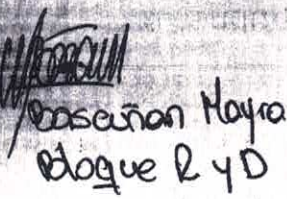 Bascuñan Mayra
Bloque R y D